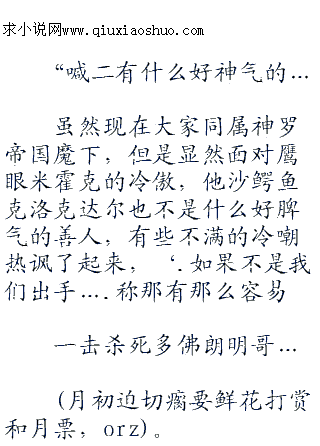 求小说网www.qiuxiaoshuo.com
“喊二有什么好神气的...
虽然现在大家同属神罗
帝国魔下，但是显然面对鹰
眼米霍克的冷傲，他沙鳄鱼
克洛克达尔也不是什么好脾
气的善人，有些不满的冷嘲
热讽了起来，‘.如果不是我
们出手....称那有那么容易
一击杀死多佛朗明哥...
(月初迫切瘸要鲜花打赏
和月票，orz)。